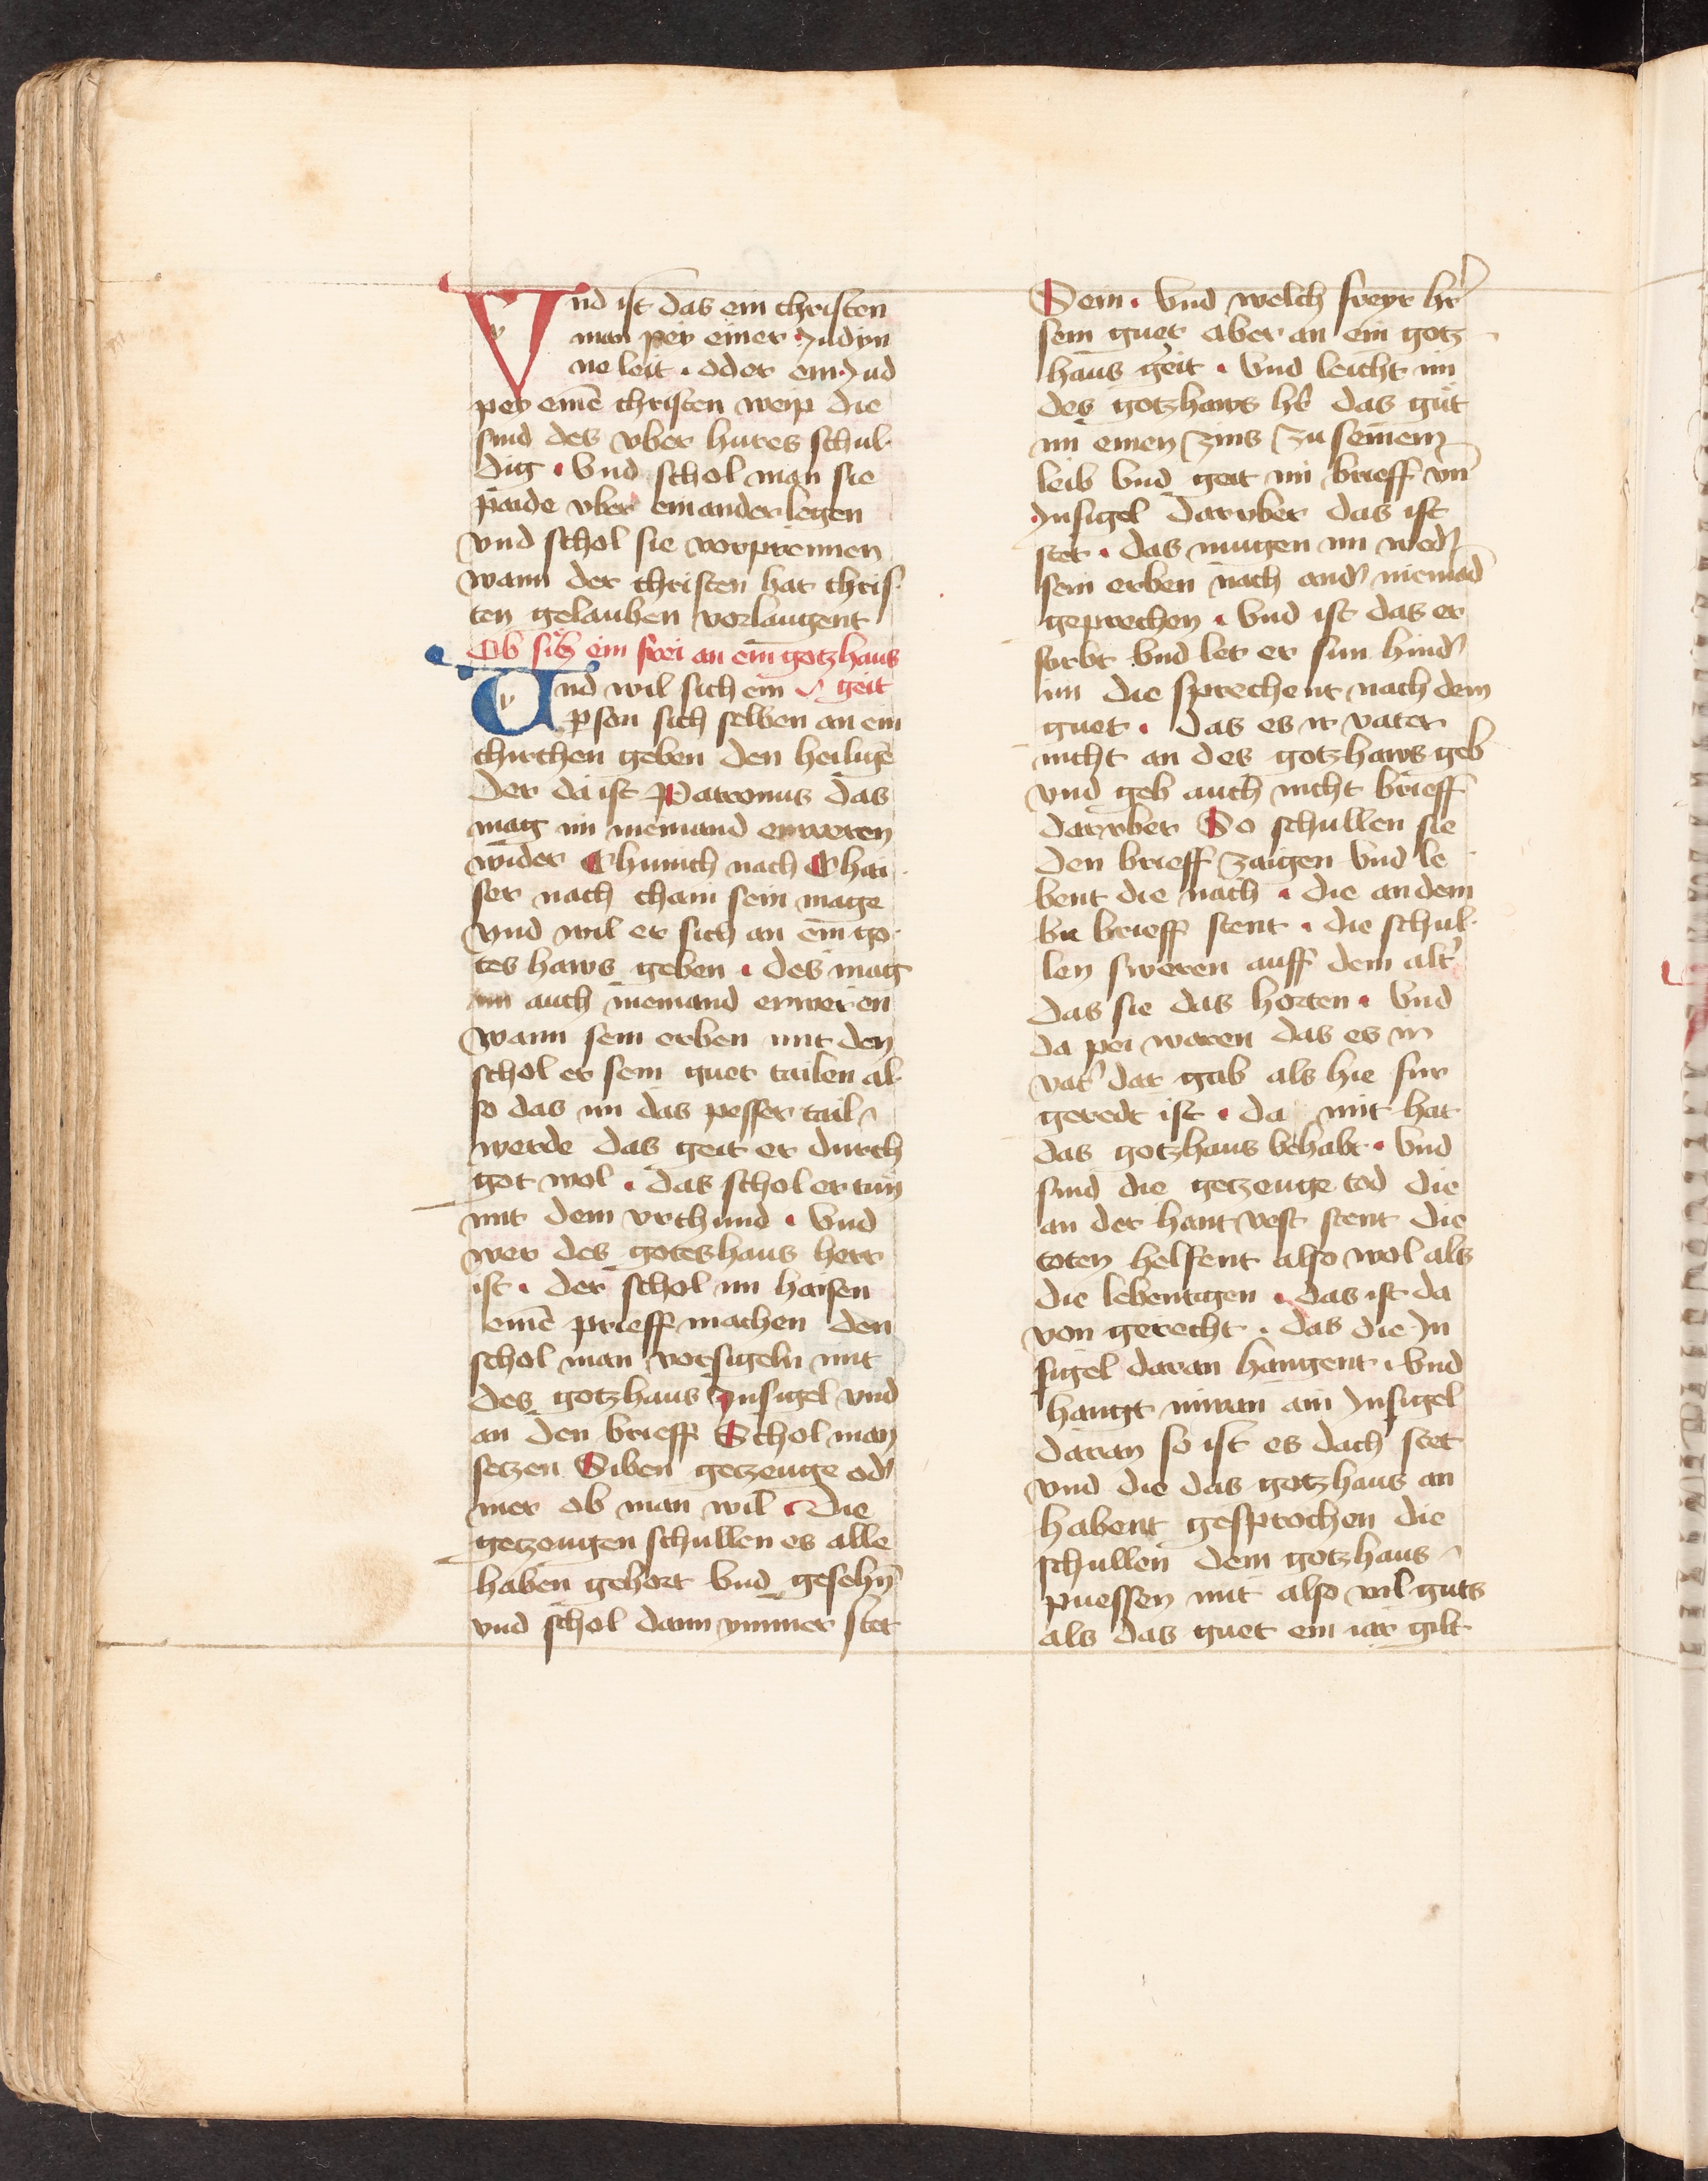 Vnd ist das ein christen
man pey einer Judyn
ne leit · oder ein Jud
pey einē christen weip die
sind des vber hures schul
dig · Vnd schol man sie
paide vber einander legen
vnd schol sie vorprennen
wann der christen hat chris
ten gelauben vorlaugent
Ob sich ein frei an ein gotzhaus
geit
Vnd wil sich ein
pson sich selben an ein
chirchen geben den heiligē
Der da ist Patronus das
mag im niemand erweren
wider Chunich nach Chai
ser nach chain sein mage
vnd wil er sich an ein go
tes haws geben · des mag
im auch niemand erweren
wann sein erben mit den
schol er sein guet tailen al
so das im das pesser tail
werde das geit er durch
got wol · das schol er tun
mit dem vrchund · Vnd
wer des goteshaus herr
ist · der schol im haisen
einē prieff machen den
schol man vorsigeln mit
des gotzhaus Insigel vnd
an den brieff Schol man
setzen Siben getzeuge od'
mer ob man wil · Die
getzeugen schullen es alle
haben gehort Vnd gesehn̄
vnd schol dann ymmer stet
Sein · Vnd welch freyr hr'
sein guet aber an ein gotz
haus geit · Vnd leicht im
des gotzhaws hr' das gut
im einen zins zu seinem
leib Vnd geit im brieff vn̄
Insigel daruber das ist
stet · das mugen im wed'
sein erben nach and' niemād
geprechen · Vnd ist das er
stirbt Vnd let er sun hind'
im die sprechent nach dem
guet · das es ir vater
nicht an des gotzhaws geb
vnd geb auch nicht brieff
daruber So schullen sie
den brieff zaigen Vnd le
bent die nach · die an dem
brieff stent · die schul
len sweren auff dem alt'
das sie das horten · Vnd
da pei waren das es ir
vat' dar gab als hie fur
geredt ist · da mit hat
das gotzhaus behabt · Vnd
sind die getzeuge tod die
an der hantvest stent die
toten helfent also wol als
die lebentigen · das ist da
von gerecht · das die In
sigel daran hangent · Vnd
hangt niwan ain Insigel
daran so ist es dach stet
vnd die das gotzhaus an
habent gesprochen die
schullen dem gotzhaus
puessen mit also vil guts
als das guet ein iar gilt